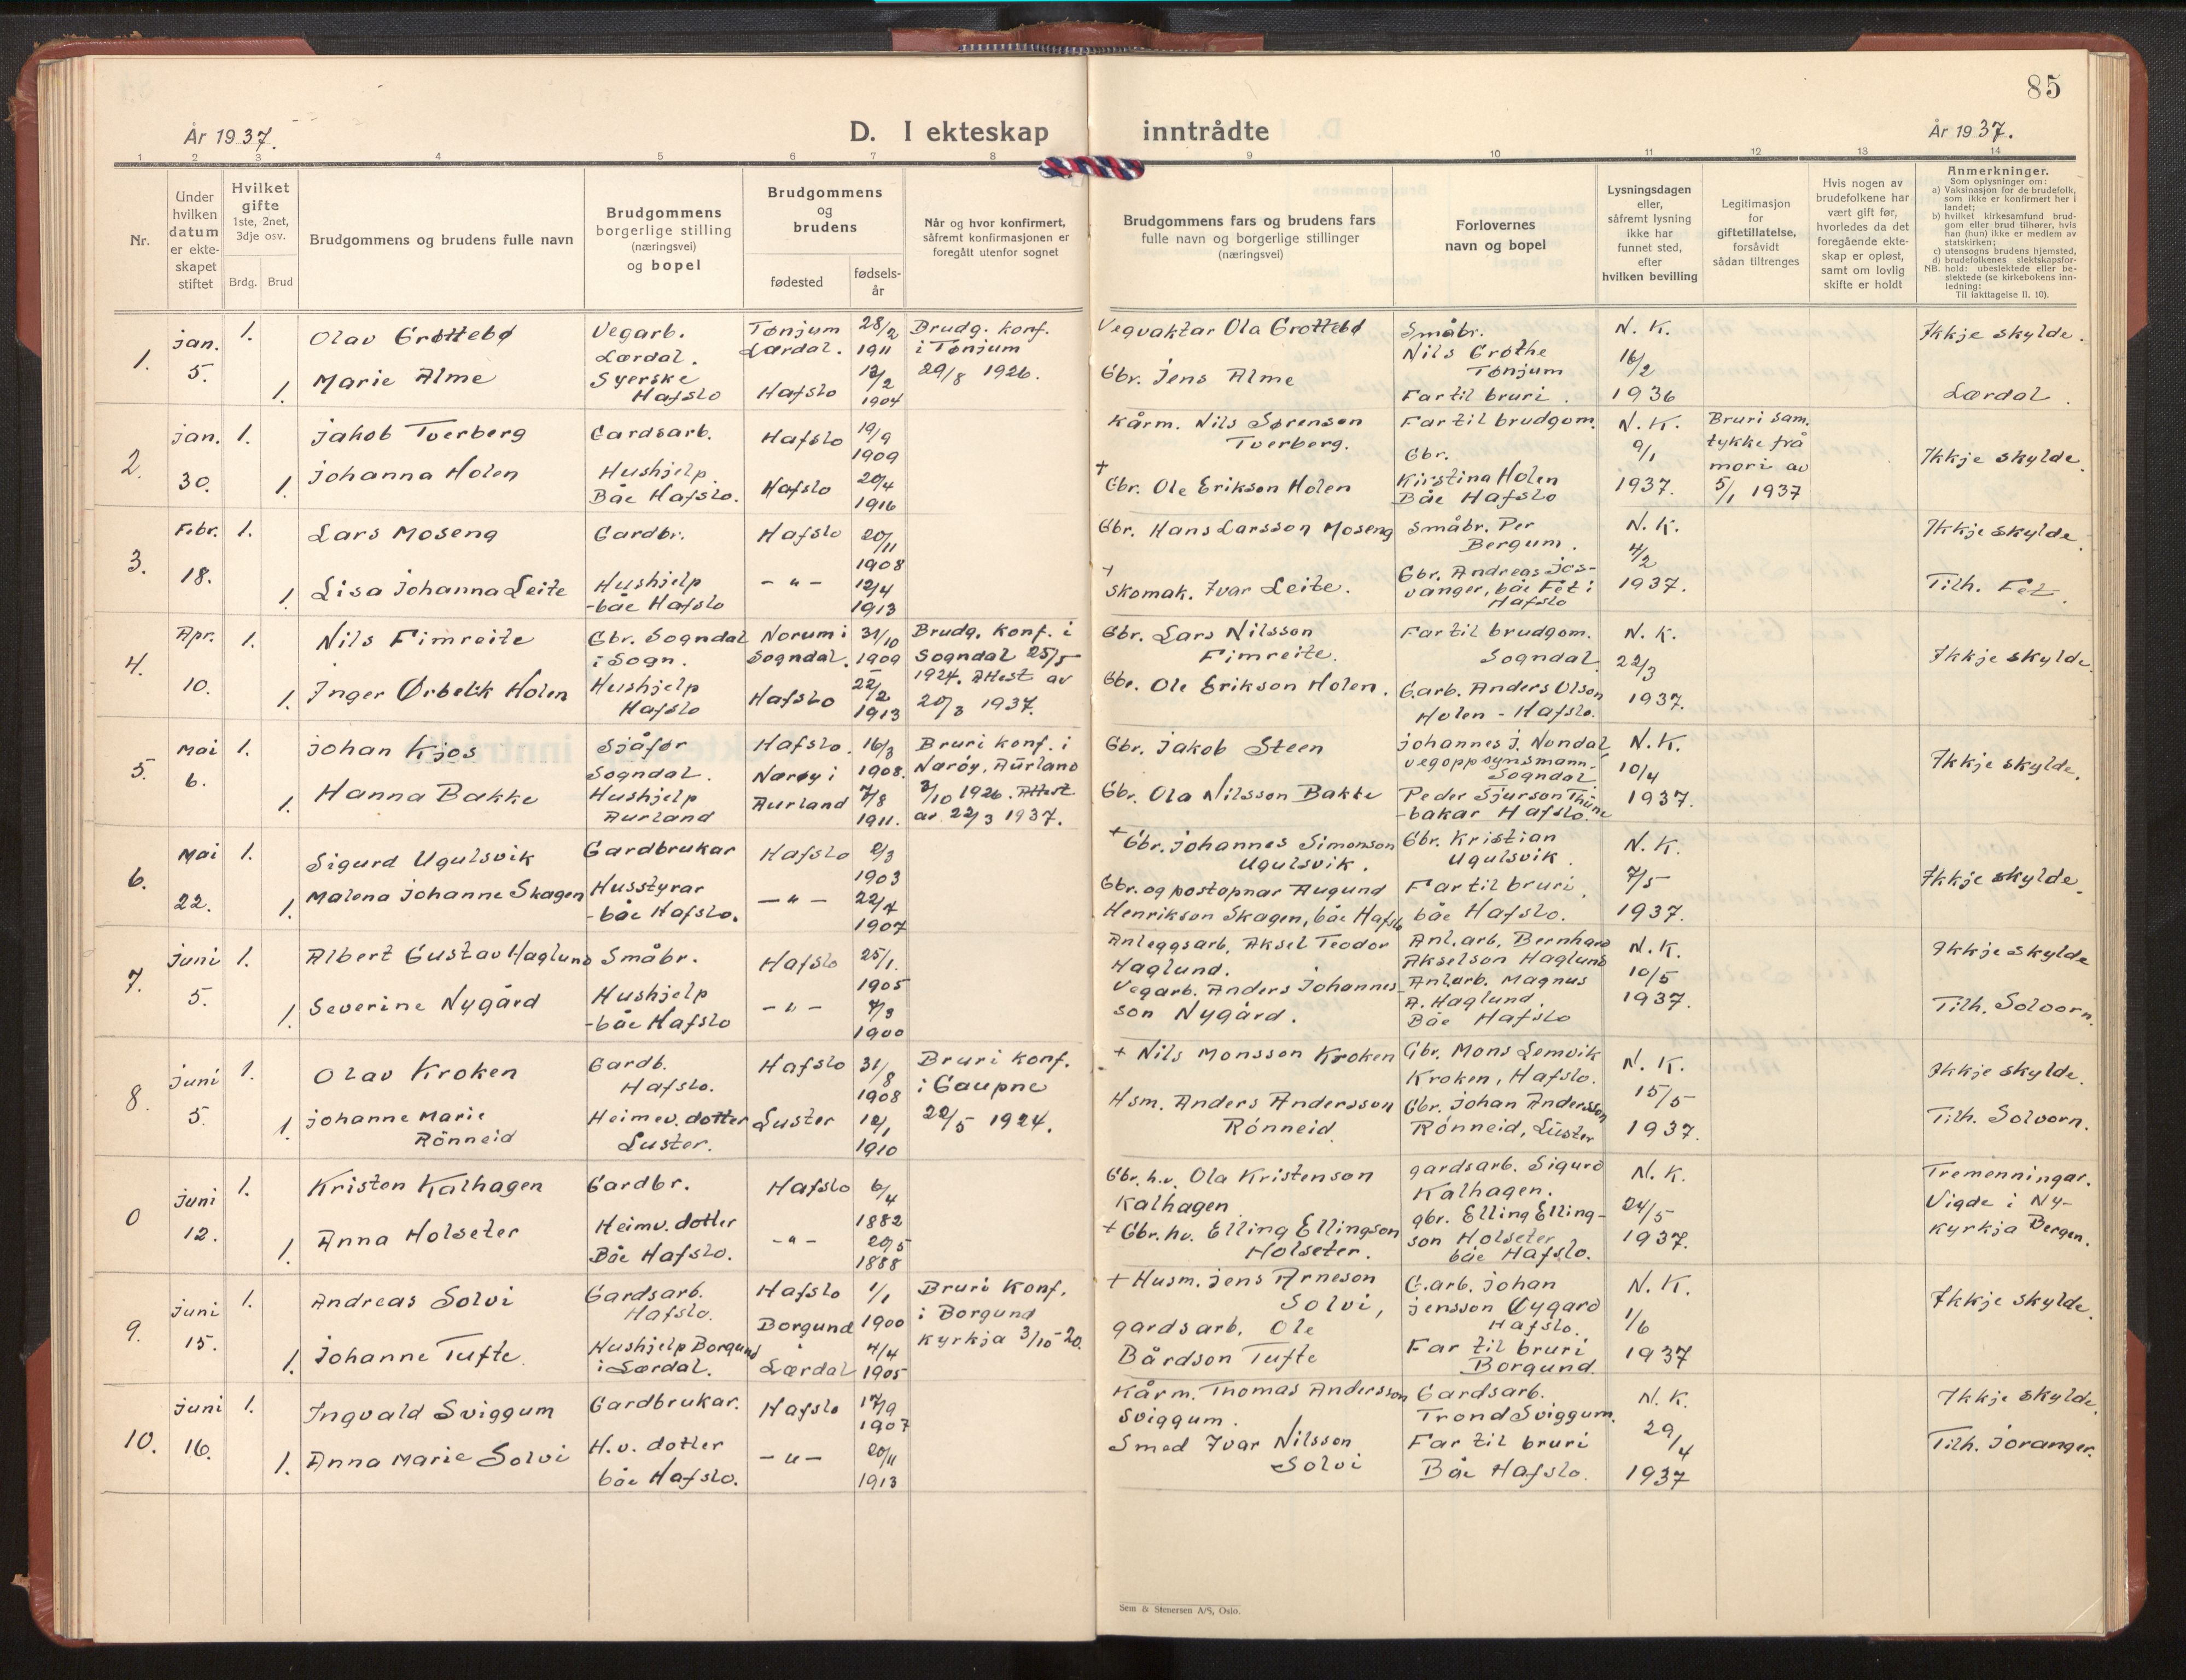 85
År 1937.
D. I ekteskap inntrådte
År 1937.
1 2 3 4 5 6 7 8 9 10 11 12 13 14
Nr.
Under hvilken datum er ekteskapet stiftet
Hvilket gifte
1ste, 2net, 3dje osv.
Brdg. Brud
Brudgommens og brudens fulle navn
Brudgommens borgerlige stilling (næringsvei) og bopel
Brudgommens og brudens
fødested
fødselsår
Når og hvor konfirmert, såfremt konfirmasjonen er foregått utenfor sognet
Brudgommens fars og brudens fars fulle navn og borgerlige stillinger (næringsvei)
Forlovernes navn og bopel
Lysningsdagen eller, såfremt lysning ikke har funnet sted, efter hvilken bevilling
Legitimasjon for giftetillatelse, forsåvidt sådan tiltrenges
Hvis nogen av brudefolkene har vært gift før, hvorledes da det foregående ekteskap er opløst, samt om lovlig skifte er holdt
Anmerkninger.
Som oplysninger om:
a) Vaksinasjon for de brudefolk, som ikke er konfirmert her i landet;
b) hvilket kirkesamfund brudgom eller brud tilhører, hvis han (hun) ikke er medlem av statskirken;
c) utensogns brudens hjemsted,
d) brudefolkenes slektskapsforhold: ubeslektede eller beslektede (se kirkebokens innledning:
NB.
Til iakttagelse II. 10).
1. Jan. 5. 1. Olav Grøttebø Vegarb. Lærdal. Tønjum Lærdal. 28/2 1911 Brudg. konf. i Tønjum 29/8 1926. Vegvaktar Ola Grøttebø Småbr. Nils Grøthe Tønjum N. K. 16/2 1936 Ikkje skylde.
1. Marie Alme Syerske Hafslo Hafslo 12/2 1904 Gbr. Jens Alme Far til bruri. Lærdal.
2. Jan. 30. 1. Jakob Tverberg Gardsarb. Hafslo 19/9 1909 Kårm. Nils Sørenson Tverberg. Far til brudgom. N. K. 9/1 1937. Bruri sam. tykke frå mori av 5/1 1937 Ikkje skylde.
1. Johanna Holen Hushjelp Båe Hafslo. Hafslo 20/4 1916 + Gbr. Ole Erikson Holen Gbr. Kirstina Holen Båe Hafslo
3. Febr. 18. 1. Lars Moseng Gardbr. Hafslo 20/11 1908 Gbr. Hans Larsson Moseng Småbr. Per Bergum. N. K. 4/2 1937. Ikkje skylde.
1. Lisa Johanna Leite Hushjelp - båe Hafslo - " - 12/4 1913 + Skomak. Ivar Leite. Gbr. Andreas Jos- vanger, båe Fet i Hafslo Tilh. Fet.
4. Apr. 10. 1. Nils Fimreite Gbr. Sogndal i Sogn. Norum i Sogndal. 31/10 1909 Brudg. konf. i Sogndal 25/5 1924. Attest av 20/3 1937. Gbr. Lars Nilsson Fimreite. Far til brudgom. Sogndal N. K. 22/3 1937. Ikkje skylde.
1. Inger Ørbekk Holen Hushjelp Hafslo Hafslo 22/2 1913 Gbr. Ole Erikson Holen. G.arb. Anders Olson Holen - Hafslo.
5. Mai 6. 1. Johan Kjos Sjåfør Sogndal. Hafslo. 16/3 1908. Bruri konf. i Nærøy, Aurland 3/10 1926. Attest av 22/3 1937. Gbr. Jakob Steen Johannes J. Nondal vegoppsynsmann. Sogndal N. K. 10/4 1937. Ikkje skylde.
1. Hanna Bakke Hushjelp Aurland Nærøy i Aurland 7/8 1911. Gbr. Ola Nilsson Bakke Peder Sjurson Thüne - bakar Hafslo.
6. Mai 22. 1. Sigurd Ugulsvik Gardbrukar Hafslo 2/3 1903 + Gbr. Johannes Simonson Ugulsvik. Gbr. Kristian Ugulsvik. N. K. 7/5 1937. Ikkje skylde.
1. Malena Johanne Skagen Husstyrar - båe Hafslo. - " - 22/7 1907 Gbr. og postopnar Augund Henrikson Skagen, båe Hafslo Far til bruri, båe Hafslo.
7. Juni 5. 1. Albert Gustav Haglund Småbr. Hafslo 25/1. 1905 Anleggsarb. Aksel Teodor Haglund. Anl.arb. Bernhard Akselson Haglund N. K. 10/5 1937. Ikkje skylde
1. Severine Nygård Hushjelp - båe Hafslo - " - 7/3 1900 Vegarb. Anders Johannes- son Nygård. Anl.arb. Magnus A. Haglund. Båe Hafslo Tilh. Solvorn.
8. Juni 5. 1. Olav Kroken Gardb. Hafslo. Hafslo 31/8 1908 Bruri konf. i Gaupne 22/5 1924. + Nils Monsson Kroken Gbr. Mons Lemvik Kroken, Hafslo. N. K. 15/5 1937. Ikkje skylde.
1. Johanne Marie Rönneid Heimev. dotter Luster. Luster 12/1 1910 Hsm. Anders Andersson Rönneid Gbr. Johan Andersson Rönneid, Lüster Tilh. Solvorn.
0 Juni 12. 1. Kristen Kalhagen Gardbr. Hafslo 6/4 1882 Gbr. h.v. Ola Kristenson Kalhagen gardsarb. Sigurd Kalhagen. N. K. 24/5 1937. Tremenningar. Vigde i Ny- kyrkja Bergen.
1. Anna Holseter Heimv. dotter Båe Hafslo. - " - 20/5 1888 + Gbr. hv. Elling Ellingson Holseter. gbr. Elling Elling- son Holseter båe Hafslo.
9. Juni 15. 1. Andreas Solvi Gardsarb. Hafslo. Hafslo 1/1 1900 Bruri Konf. i Borgund Kyrkja 3/10-20. + Husm. Jens Arneson Solvi, G.arb. Johan Jensson Øygard Hafslo. N. K. 1/6 1937 Ikkje skylde.
1. Johanne Tufte. Hushjelp Borgund i Lærdal. Borgund Lærdal 4/4 1905 gardsarb. Ole Bårdson Tufte Far til bruri Borgund.
10. Juni 16. 1. Ingvald Sviggum Gardbrukar. Hafslo 17/9 1907 Kårm. Thomas Andersson Sviggum. Gardsarb. Trond Sviggum. N. K. 29/4 1937 Ikkje skylde.
1. Anna Marie Solvi H.v. dotter båe Hafslo. - " - 20/11 1913 Smed Ivar Nilsson Solvi Far til bruri Båe Hafslo. Tilh. Joranger.
Sem & Stenersen A/S, Oslo.